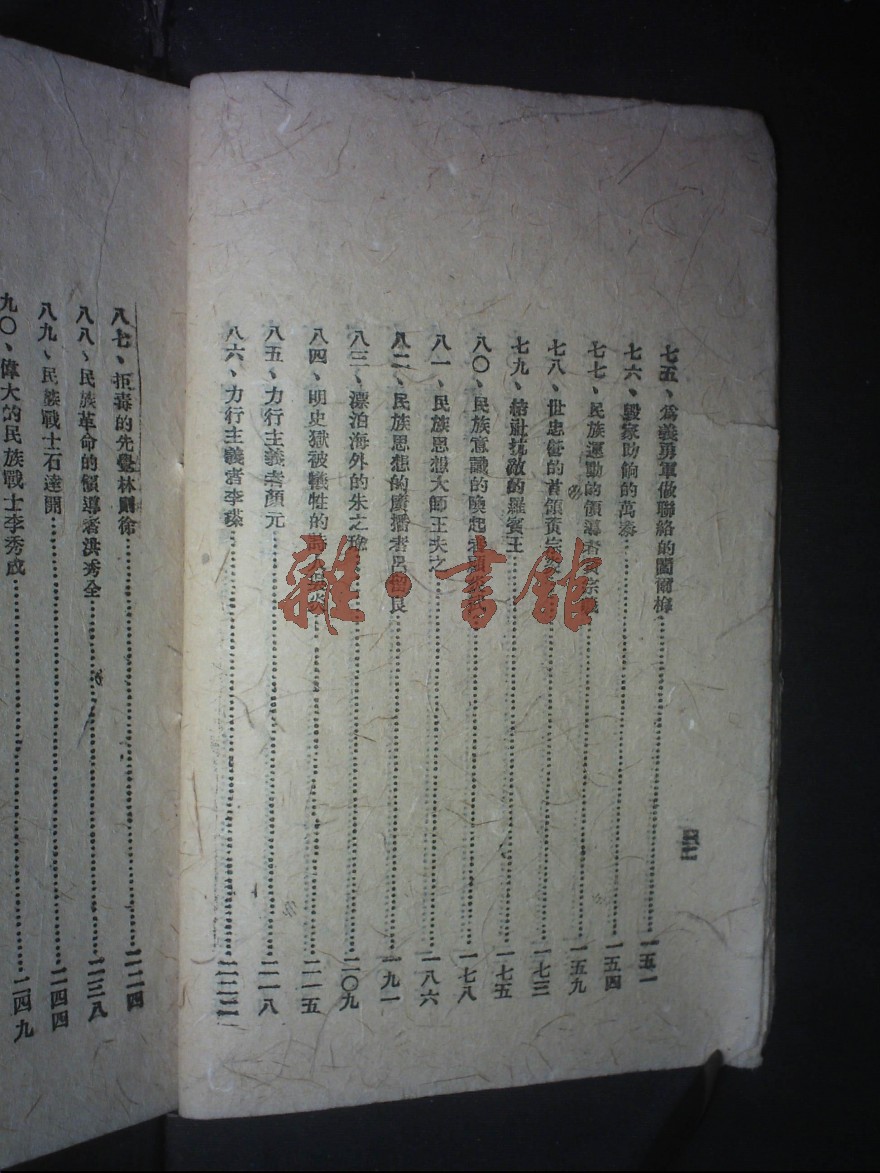 七五、爲義勇軍做聯絡的閻爾梅……一五一
七六、毀家助餉的萬泰……一五四
七七、民族運動的領導者黃宗羲……一五九
七八、世忠營的首領黃宗……一七三
七九、結社抗敵的羅賓王……一七五
八〇、民族意識的喚起者顧炎武……一七八
八一、民族思想大師王夫之……一八六
八二、民族思想的廣播者呂留良……一九一
八三、漂泊海外的朱之瑜……二〇九
八四、明史獄被犧牲的詩人……二一五
八五、力行主義者顏元……二一八
八六、力行主義者李塨……二二二
八七、拒毒的先覺林則徐……二二四
八八、民族革命的領導者洪秀全……二三八
八九、民族戰士石達開……二四四
九〇、偉大的民族戰士李秀成……二四九
雜·書館